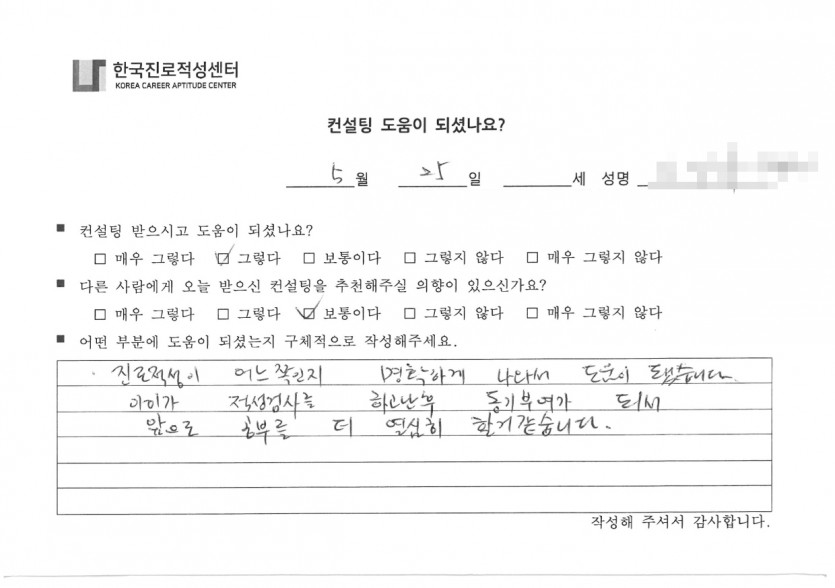 한국진로적성센터
KOREA CAREER APTITUDE CENTER
컨설팅 도움이 되셨나요?
5월 25일 세 성명
■ 컨설팅 받으시고 도움이 되셨나요?
□ 매우 그렇다 ☑ 그렇다 □ 보통이다 □ 그렇지 않다 □ 매우 그렇지 않다
■ 다른 사람에게 오늘 받으신 컨설팅을 추천해주실 의향이 있으신가요?
□ 매우 그렇다 □ 그렇다 ☑ 보통이다 □ 그렇지 않다 □ 매우 그렇지 않다
■ 어떤 부분에 도움이 되셨는지 구체적으로 작성해주세요.
진로적성이 어느쪽인지 명확하게 나와서 도움이 됐습니다.
아이가 적성검사를 하고난후 동기부여가 되서
앞으로 공부를 더 열심히 할거같습니다.
작성해 주셔서 감사합니다.